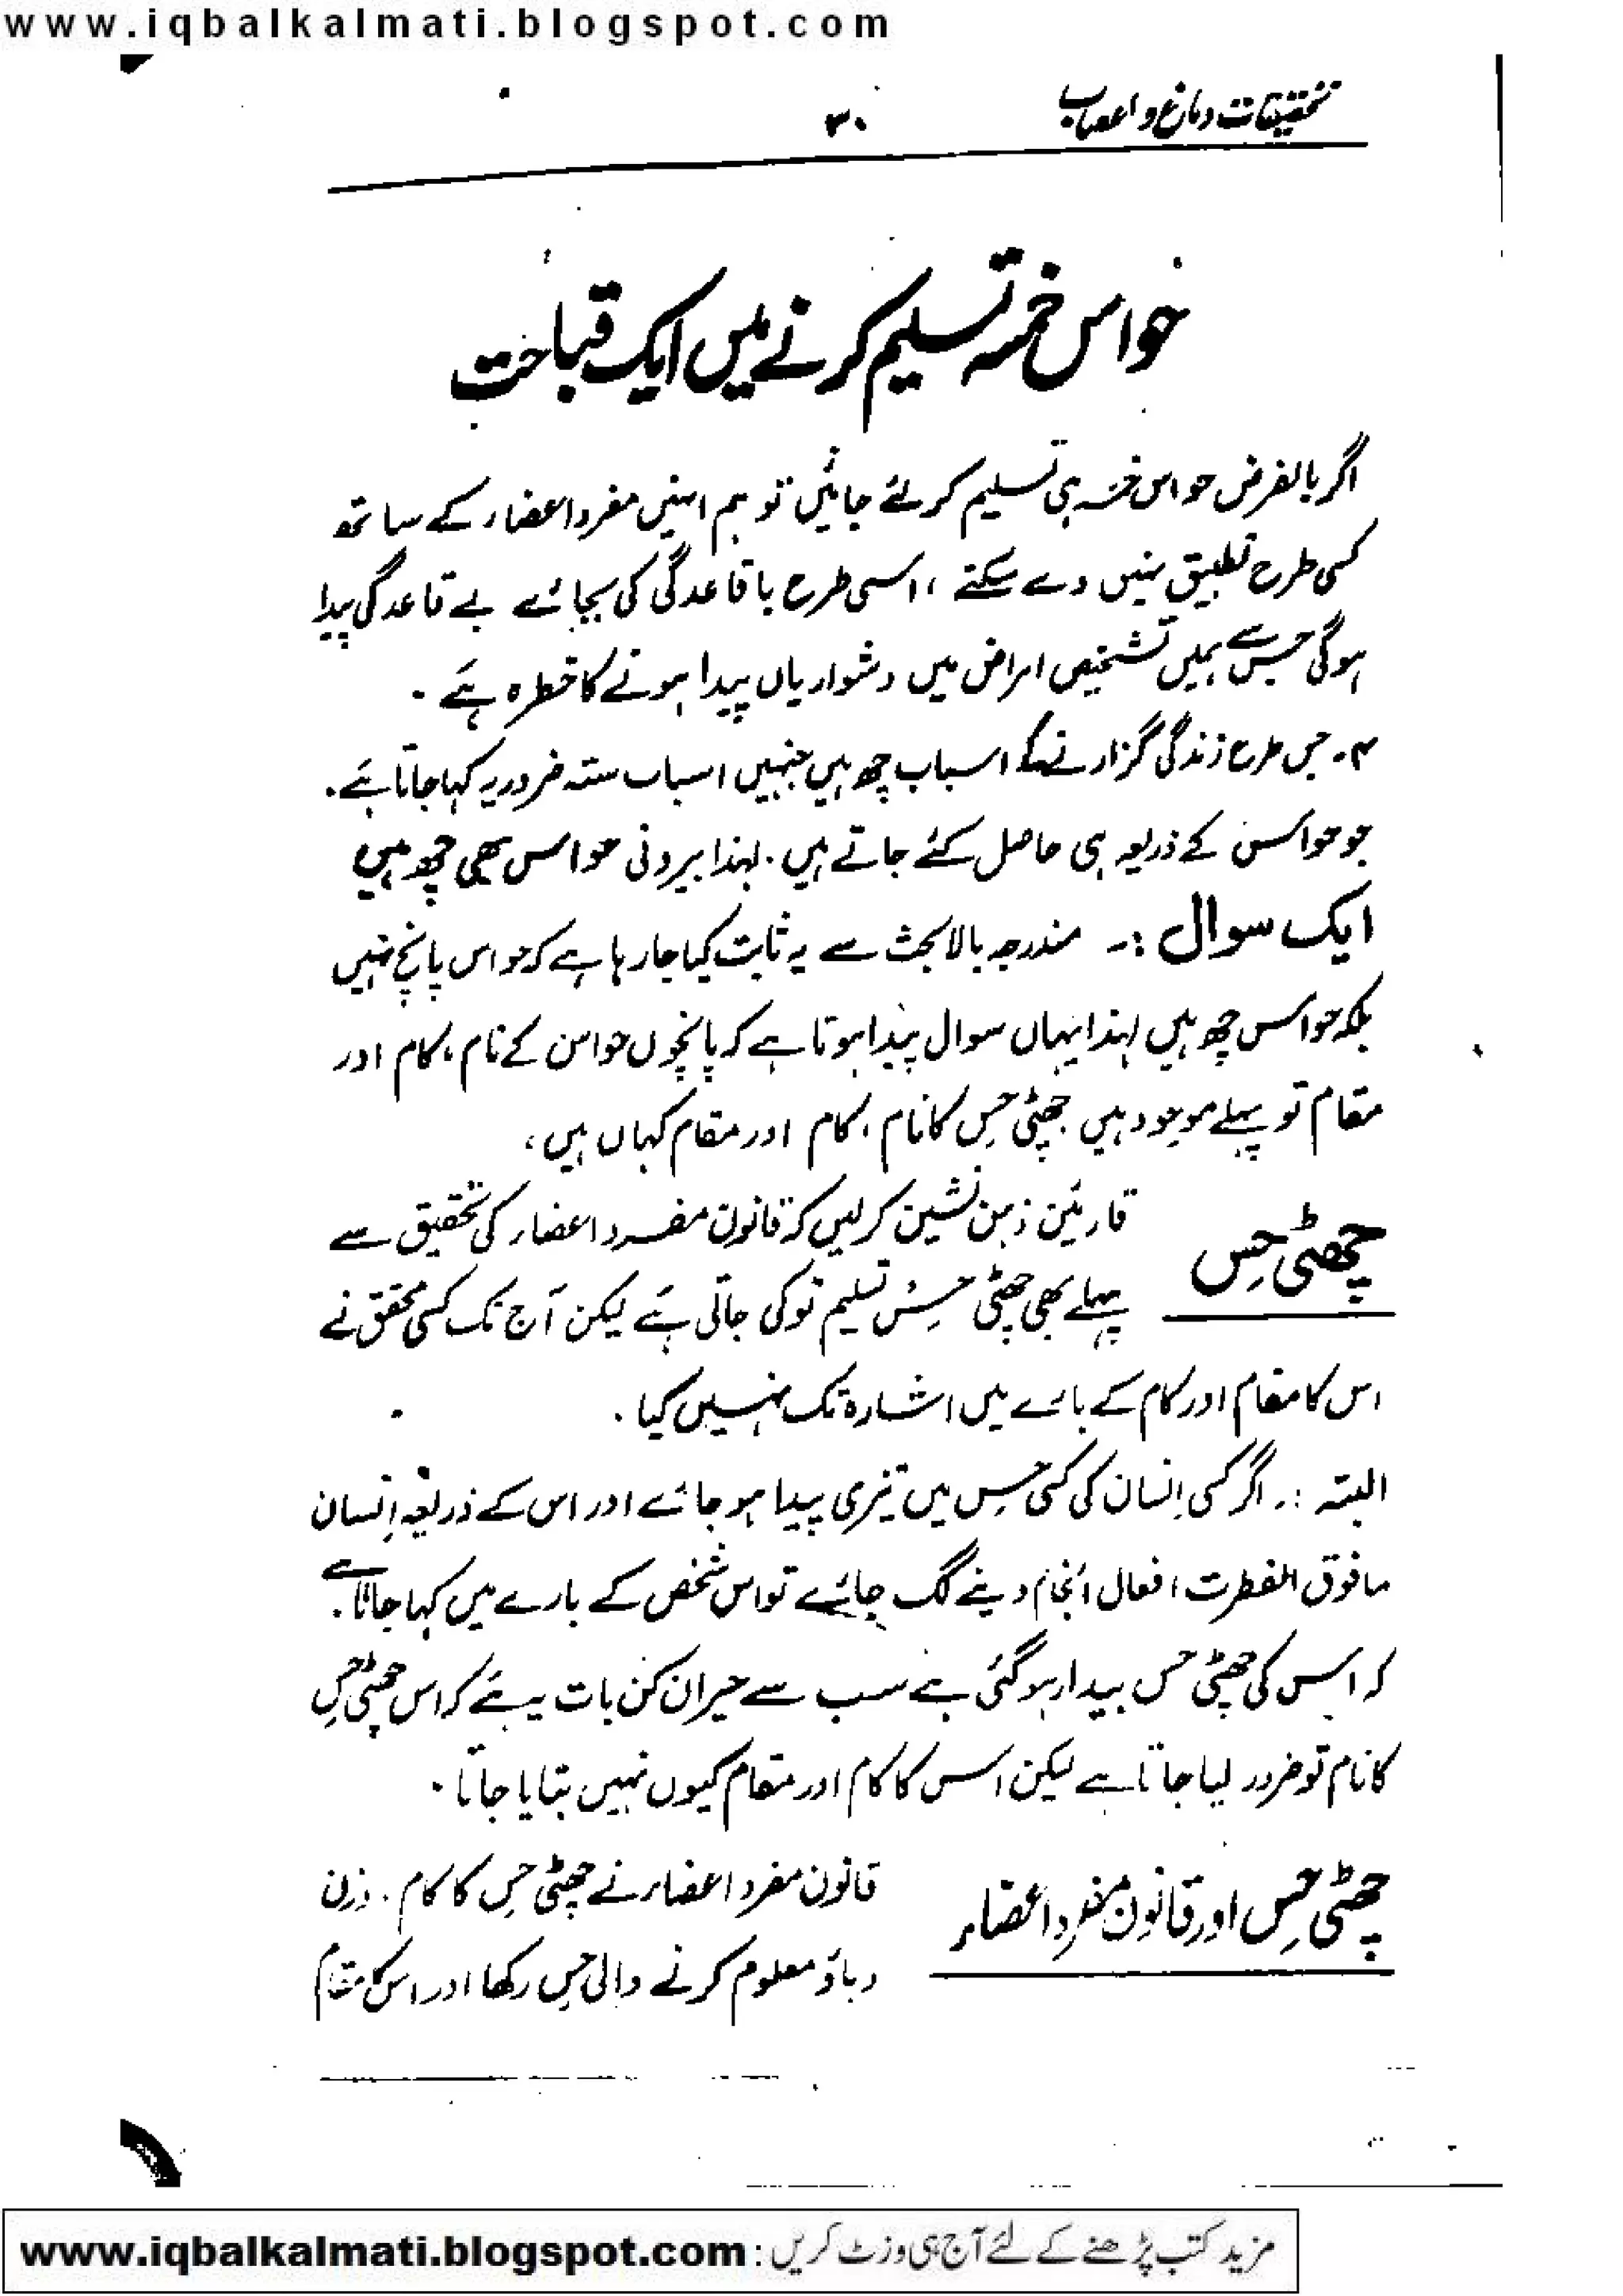 www.iqbalkalmati.blogspot.com
تحقیقات دماغ و اعصاب ۳۰
حواس خمسہ تسلیم کرنے میں ایک قباحت
اگر بالفرض حواس خمسہ ہی تسلیم کرلئے جائیں تو ہم انہیں مفرد اعضاء کے ساتھ
کسی طرح تطبیق نہیں دے سکتے ، اسی طرح باقاعدگی کی بجائے بے قاعدگی پیدا
ہوگی جس سے ہمیں تشخیص امراض میں دشواریاں پیدا ہونے کا خطرہ ہے ۔
۴۔ جس طرح زندگی گزارنے کے اسباب چھ ہیں جنہیں اسباب ستہ ضروریہ کہا جاتا ہے ۔
جو حواس کے ذریعہ ہی حاصل کئے جاتے ہیں ۔ لہذا بیرونی حواس بھی چھ ہیں
ایک سوال :۔ مندرجہ بالا بحث سے یہ ثابت کیا جا رہا ہے کہ حواس پانچ نہیں
بلکہ حواس چھ ہیں لہذا یہاں سوال پیدا ہوتا ہے کہ پانچوں حواس کے نام ، کام اور
مقام تو پہلے موجود ہیں چھٹی حِس کا نام ، کام اور مقام کہاں ہیں ،
چھٹی حِس قارئین ذہن نشین کرلیں کہ قانون مفرد اعضاء کی تحقیق سے
پہلے بھی چھٹی حِس تسلیم تو کی جاتی ہے لیکن آج تک کسی محقق نے
اس کا مقام اور کام کے بارے میں اشارہ تک نہیں کیا ۔
البتہ :۔ اگر کسی اِنسان کی کسی حِس میں تیزی پیدا ہو جائے اور اس کے ذریعہ اِنسان
مافوق الفطرت افعال انجام دینے لگ جائے تو اس شخص کے بارے میں کہا جاتا ہے ۔
کہ اس کی چھٹی حس بیدار ہوگئی ہے سب سے حیران کن بات یہ ہے کہ اس چھٹی حِس
کا نام تو ضرور لیا جاتا ہے لیکن اس کا کام اور مقام کیوں نہیں بتایا جاتا ۔
چھٹی حِس اور قانون مفرد اعضاء قانون مفرد اعضاء نے چھٹی حِس کا کام ۔ وزن
دباؤ معلوم کرنے والی حِس رکھا اور اس کا مقام
مزید کتب پڑھنے کے لئے آج ہی وزٹ کریں : www.iqbalkalmati.blogspot.com